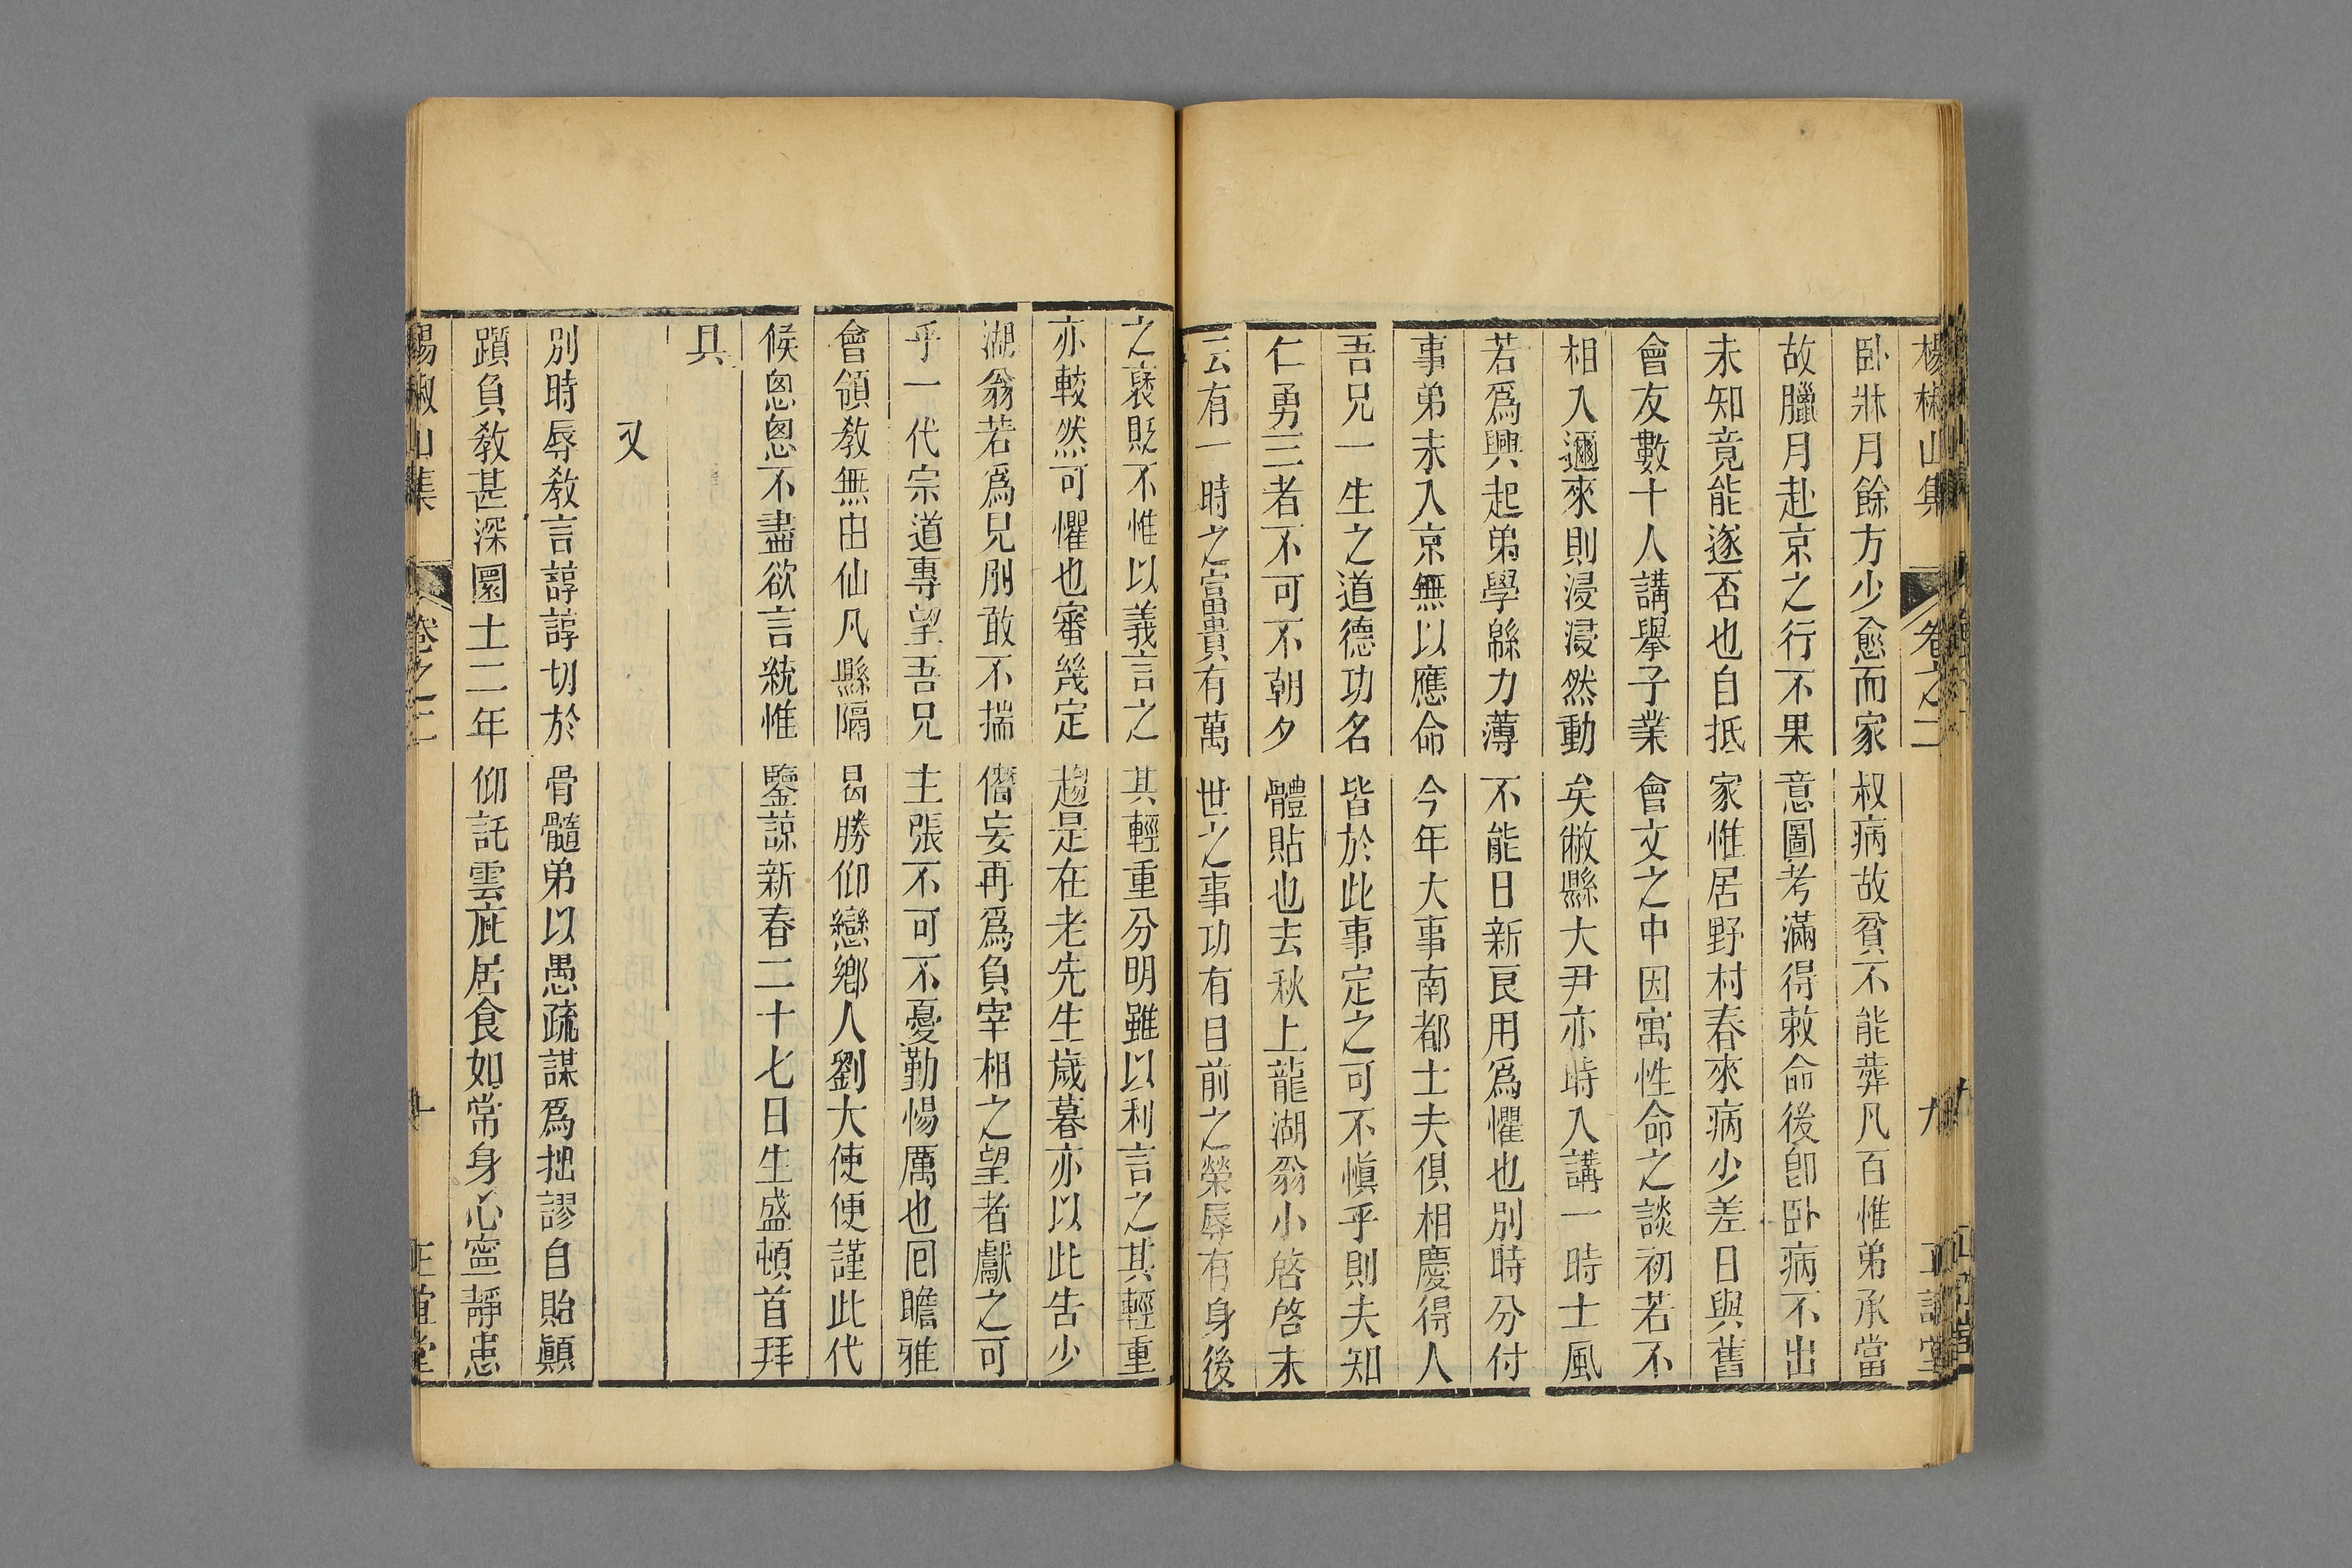 楊椒山集 卷之二 九 正誼堂
卧牀月餘方少愈而家叔病故貧不能葬凡百惟弟承當
故臘月赴京之行不果意圖考滿得敕命後卽卧病不出
未知竟能遂否也自抵家惟居野村春來病少差日與舊
會友數十人講舉子業會文之中因寓性命之談初若不
相入邇來則浸浸然動矣敝縣大尹亦時入講一時士風
若爲興起弟學緜力薄不能日新艮用爲懼也別時分付
事弟未入京無以應命今年大事南都士夫俱相慶得人
吾兄一生之道德功名皆於此事定之可不愼乎則夫知
仁勇三者不可不朝夕體貼也去秋上龍湖翁小啓啓末
云有一時之富貴有萬世之事功有目前之榮辱有身後
之襃貶不惟以義言之其輕重分明雖以利言之其輕重
亦較然可懼也審幾定趨是在老先生歲暮亦以此告少
湖翁若爲兄剛敢不揣僭妄再爲負宰相之望者獻之可
乎一代宗道專望吾兄主張不可不憂勤惕厲也囘瞻雅
會領敎無由仙凡縣隔曷勝仰戀鄕人劉大使便謹此代
候悤悤不盡欲言統惟鑒諒新春二十七日生盛頓首拜
具
又
別時辱敎言諄諄切於骨髓弟以愚疏謀爲拙謬自貽顚
躓負敎甚深圜土二年仰託雲庇居食如常身心寧靜恚
楊椒山集 卷之二 十 正誼堂